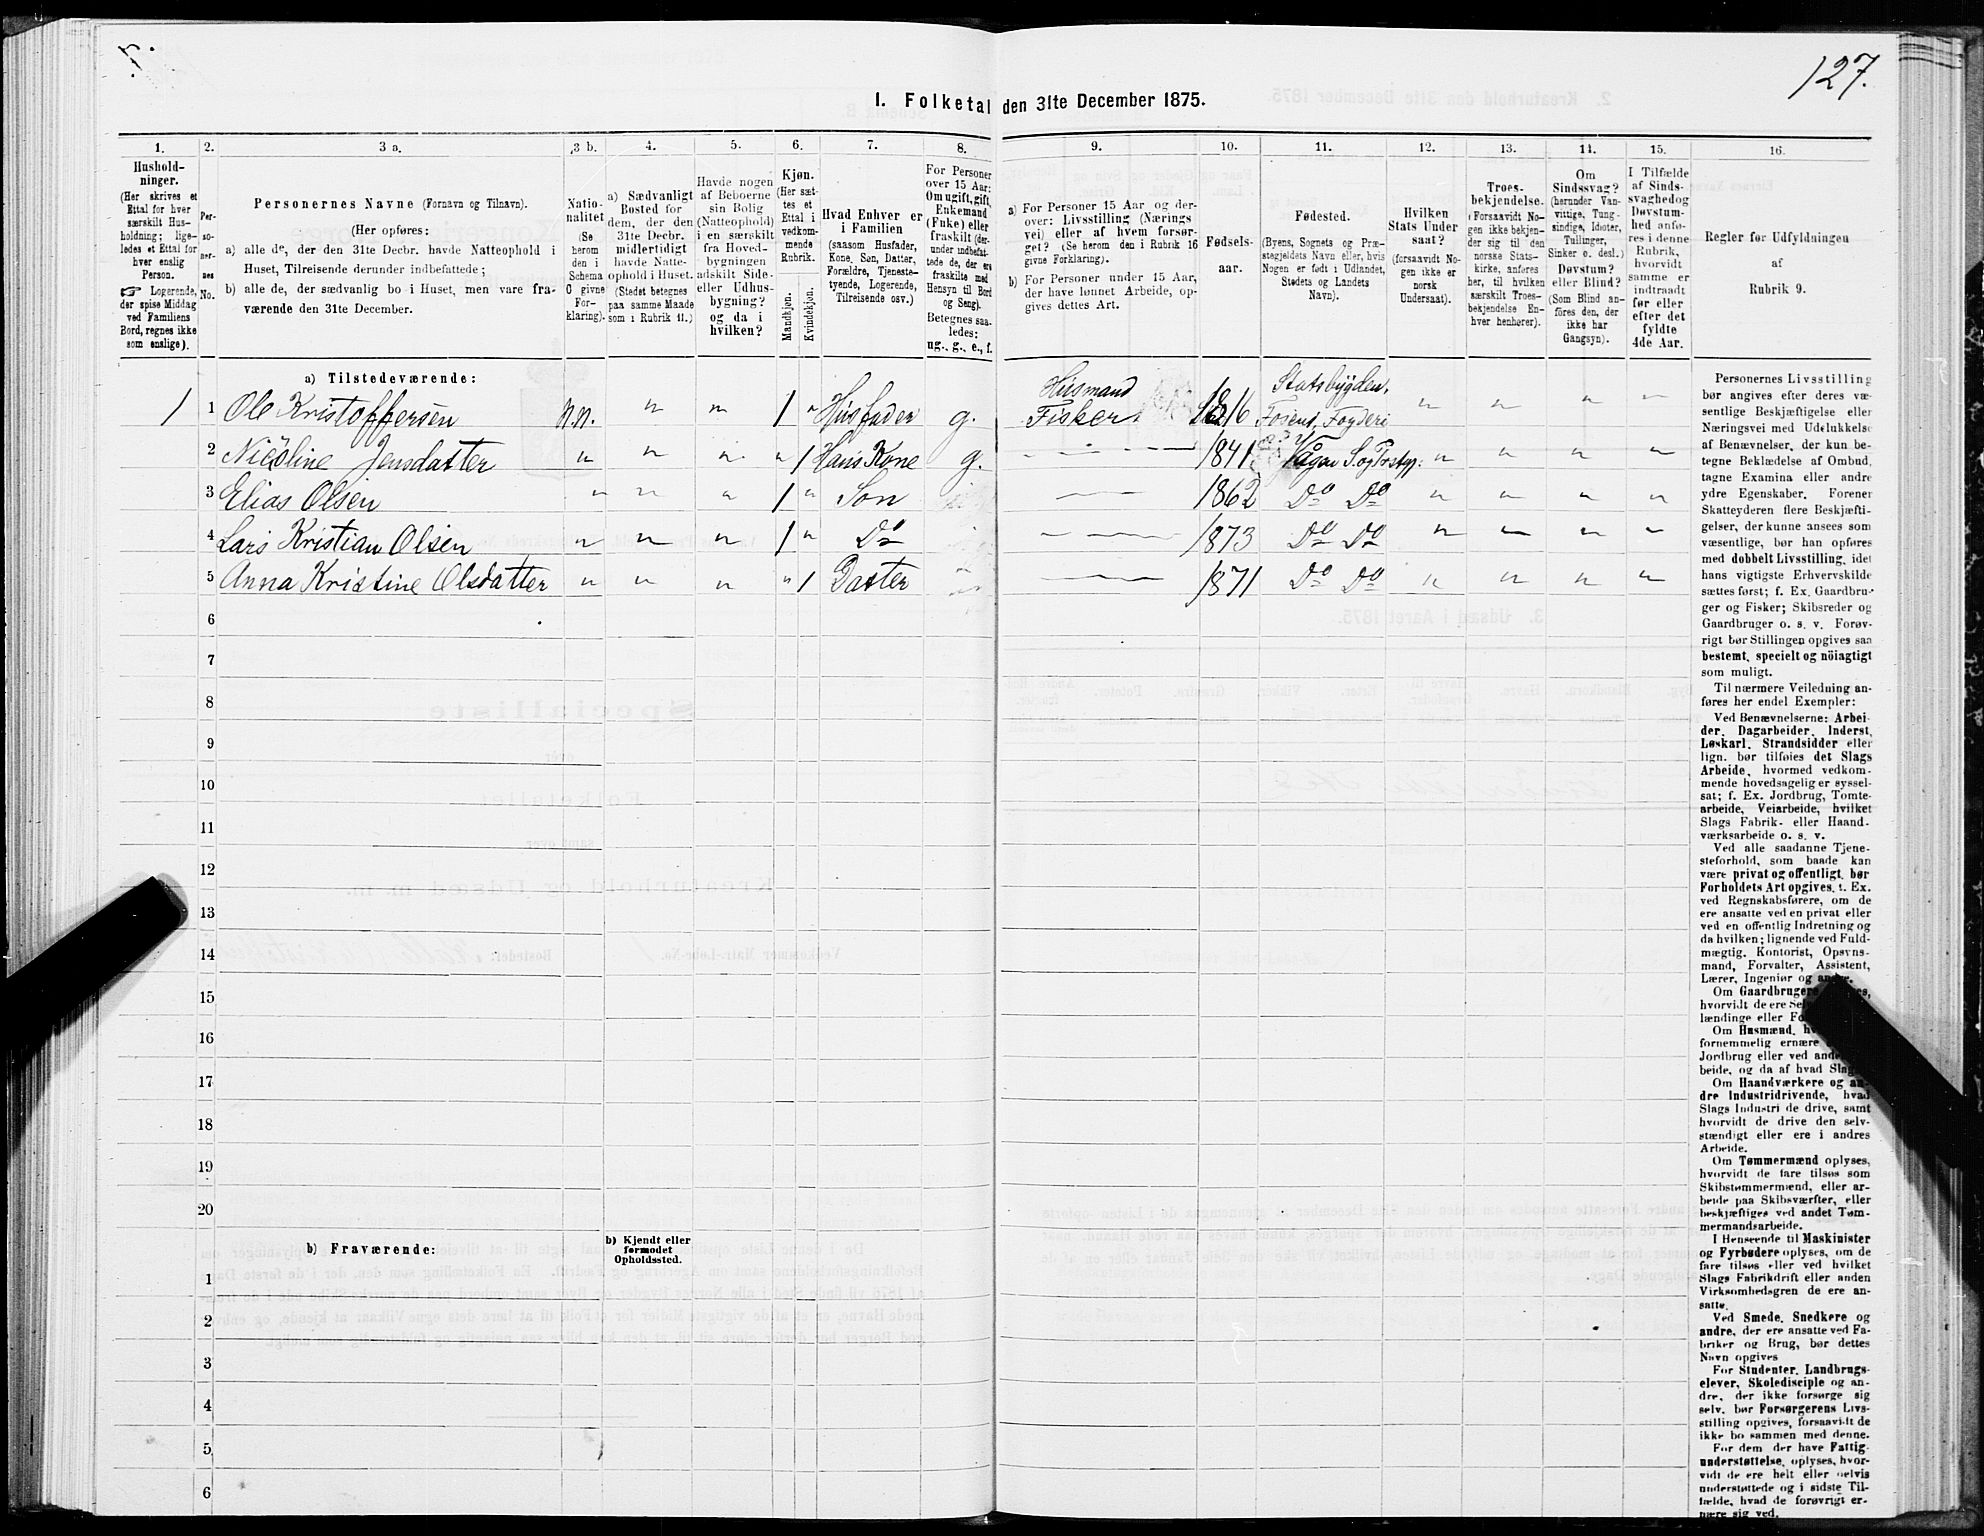 127.
1. Folketal den 31te December 1875.
1. 2. 3 a. 3 b. 4. 5. 6. 7. 8. 9. 10. 11. 12. 13. 14. 15. 16.
Hushold-
ninger.
(Her skrives et
Ettal for hver
særskilt Hus-
holdning; lige-
ledes et Ettal for
hver enslig
Person.
☞ Logerende,
der spise Middag
ved Familiens
Bord, regnes ikke
som enslige).
Per-
so-
ner-
nes
No.
Personernes Navne (Fornavn og Tilnavn).
(Her opføres:
a) alle de, der den 31te Decbr. havde Natteophold i
Huset, Tilreisende derunder indbefattede;
b) alle de, der sædvanlig bo i Huset, men vare fra-
værende den 31te December.
Natio-
nalitet
(Se
herom
den i
Schema
O givne
For-
klaring).
a) Sædvanligt
Bosted for
dem, der den
31te Decbr.
midlertidigt
havde Natte-
ophold i Huset.
(Stedet betegnes
paa samme Maade
som i Rubrik 11.)
Havde nogen
af Beboerne
sin Bolig
(Natteophold)
i en særskilt
fra Hoved-
bygningen
adskilt Side-
eller Udhus-
bygning?
og da i
hvilken?
Kjøn.
(Her sæt-
tes et
Ettal i
vedkom-
mende
Rubrik.
Mandkjøn.
Kvindekjøn.
Hvad Enhver er
i Familien
(saasom Husfader,
Kone, Søn, Datter,
Forældre, Tjeneste-
tyende, Logerende,
Tilreisende osv.)
For Personer
over 15 Aar:
Om ugift, gift,
Enkemand
(Enke) eller
fraskilt (der-
under indbefat-
tede de, der ere
fraskilte med
Hensyn til Bord
og Seng).
Betegnes saa-
ledes:
ug., g., e., f.
a) For Personer 15 Aar og der-
over: Livsstilling (Nærings
vei) eller af hvem forsør-
get? (Se herom den i Rubrik 16
givne Forklaring).
b) For Personer under 15 Aar,
der have lønnet Arbeide, op-
gives dettes Art.
Fødsels-
aar.
Fødested.
(Byens, Sognets og Præ-
stegjeldets Navn eller, hvis
Nogen er født i Udlandet,
Stedets og Landets
Navn).
Hvilken
Stats Under
saat?
(forsaavidt No-
gen ikke er
norsk
Undersaat).
Troes-
bekjendelse.
(Forsaavidt No-
gen ikke bekjen-
der sig til den
norske Stats-
kirke, anføres
her, til hvilken
særskilt Troes-
bekjendelse En-
hver henhører).
Om
Sindssvag?
(herunder Van-
vittige, Tung-
sindige, Idioter,
Tullinger,
Sinker o. desl.)
Døvstum?
eller Blind?
(Som Blind an-
føres den, der
ikke har
Gangsyn).
I Tilfælde
af Sinds-
svaghed og
Døvstum-
hed anfø-
res i denne
Rubrik,
hvorvidt
samme er
indtraadt
før eller
efter det
fyldte
4de Aar.
Regler før Udfyldningen
af
Rubrik 9.
a) Tilstedeværende:
1 1 Ole Kristoffersen n.n. " " " 1 " Husfader g. Husmand Fisker 1816 Statsbygden, Fosens Fogderi " " " "
2 Nicoline Jensdatter " " " " 1 Hans Kone g. " 1841 Vågan S. og Prstgj: " " " "
3 Elias Olsen " " " 1 " Søn " 1862 Do Do " " " "
4 Lars Kristian Olsen " " " 1 " Do " 1873 Do Do " " " "
5 Anna Kristine Olsdatter " " " " 1 Datter " 1871 Do Do " " " "
6
7
8
9
10
11
12
13
14
15
16
17
18
19
20
b) Fraværende:
b) Kjendt eller
formodet
Opholdssted.
1
2
3
4
5
6
Personernes Livsstilling
bør angives efter deres væ-
sentlige Beskjæftigelse eller
Næringsvei med Udelukkelse
af Benævnelser, der kun be-
tegne Beklædelse af Ombud,
tagne Examina eller andre
ydre Egenskaber. Forener
Skatteyderen flere Beskjæfti-
gelser, der kunne ansees som
væsentlige, bør han opføres
med dobbelt Livsstilling, idet
hans vigtigste Erhvervskilde
sættes først; f. Ex. Gaardbru-
ger og Fisker; Skibsreder og
Gaardbruger o. s. v. Forøv-
rigt bør Stillingen opgives saa
bestemt, specielt og nöiagtigt
som muligt.
Til nærmere Veiledning an-
føres her endel Exempler:
Ved Benævnelserne: Arbei-
der, Dagarbeider, Inderst,
Løskarl, Strandsidder eller
lign. bør tilføies det Slags
Arbeide, hvormed vedkom-
mende hovedsagelig er syssel-
sat; f. Ex. Jordbrug, Tomte-
arbeide, Veiarbeide, hvilket
Slags Fabrik- eller Haand-
værksarbeide o. s. v.
Ved alle saadanne Tjene-
steforhold, som baade kan
være privat og offentligt, bør
Forholdets Art opgives, f. Ex.
ved Regnskabsførere, om de
ere ansatte ved en privat eller
ved en offentlig Indretning og
da hvilken; lignende ved Fuld-
mægtig, Kontorist, Opsyns-
mand, Forvalter, Assistent,
Lærer, Ingeniør og andre.
Om Gaardbrugere
hvorvidt de ere
lændinge eller
Om Husmænd,
fornemmelig ernære
Jordbrug eller ved
beide, og da af hvad
Om Haandværkere og an-
dre Industridrivende, hvad
Slags Industri de drive, samt
hvorvidt de drive den selv-
stændigt eller ere i andres
Arbeide.
Om Tømmermænd oplyses,
hvorvidt de fare tilsøs som
Skibstømmermænd, eller ar-
beide paa Skibsværfter, eller
beskjæftiges ved andet Tøm-
mermandsarbeide.
I Henseende til Maskinister
og Fyrbødere oplyses, om de
fare tilsøs eller ved hvilket
Slags Fabrikdrift eller anden
Virksomhedsgren de ere an-
satte.
Ved Smede, Snedkere og
andre, der ere ansatte ved Fa-
briker og Brug, bør dettes
Navn opgives
For Studenter, Landbrugs-
elever, Skoledisciple og an-
dre, der ikke forsørge sig
selv, bør Forsørgerens Livs-
stilling opgives, forsaavidt de
ikke bo sammen med denne.
For dem der have Fattig-
understøttelse, oplyses, hvor-
vidt de ere helt eller delvis
understøttede og i sidste Til-
fælde, hvad de forøvrigt er-
nære sig ved.